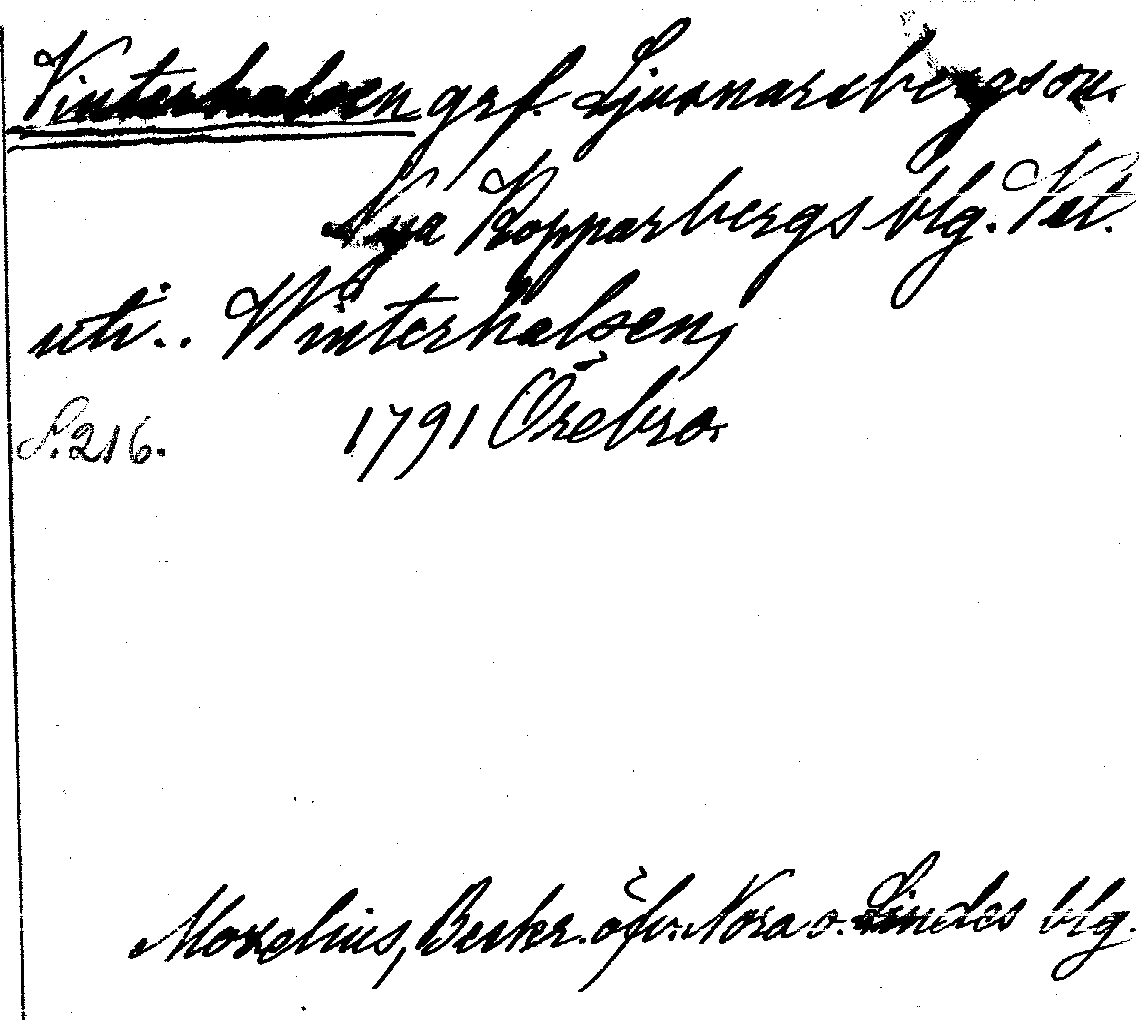 Vinterhalsen grf. Ljusnarsbergs sn.
Nya Kopparbergs blg. Vst.
uti.. Winterhalsen,
S. 216. 1791 Örebro.
Moxelius, Beskr. öfv. Nora o. Lindes blg.